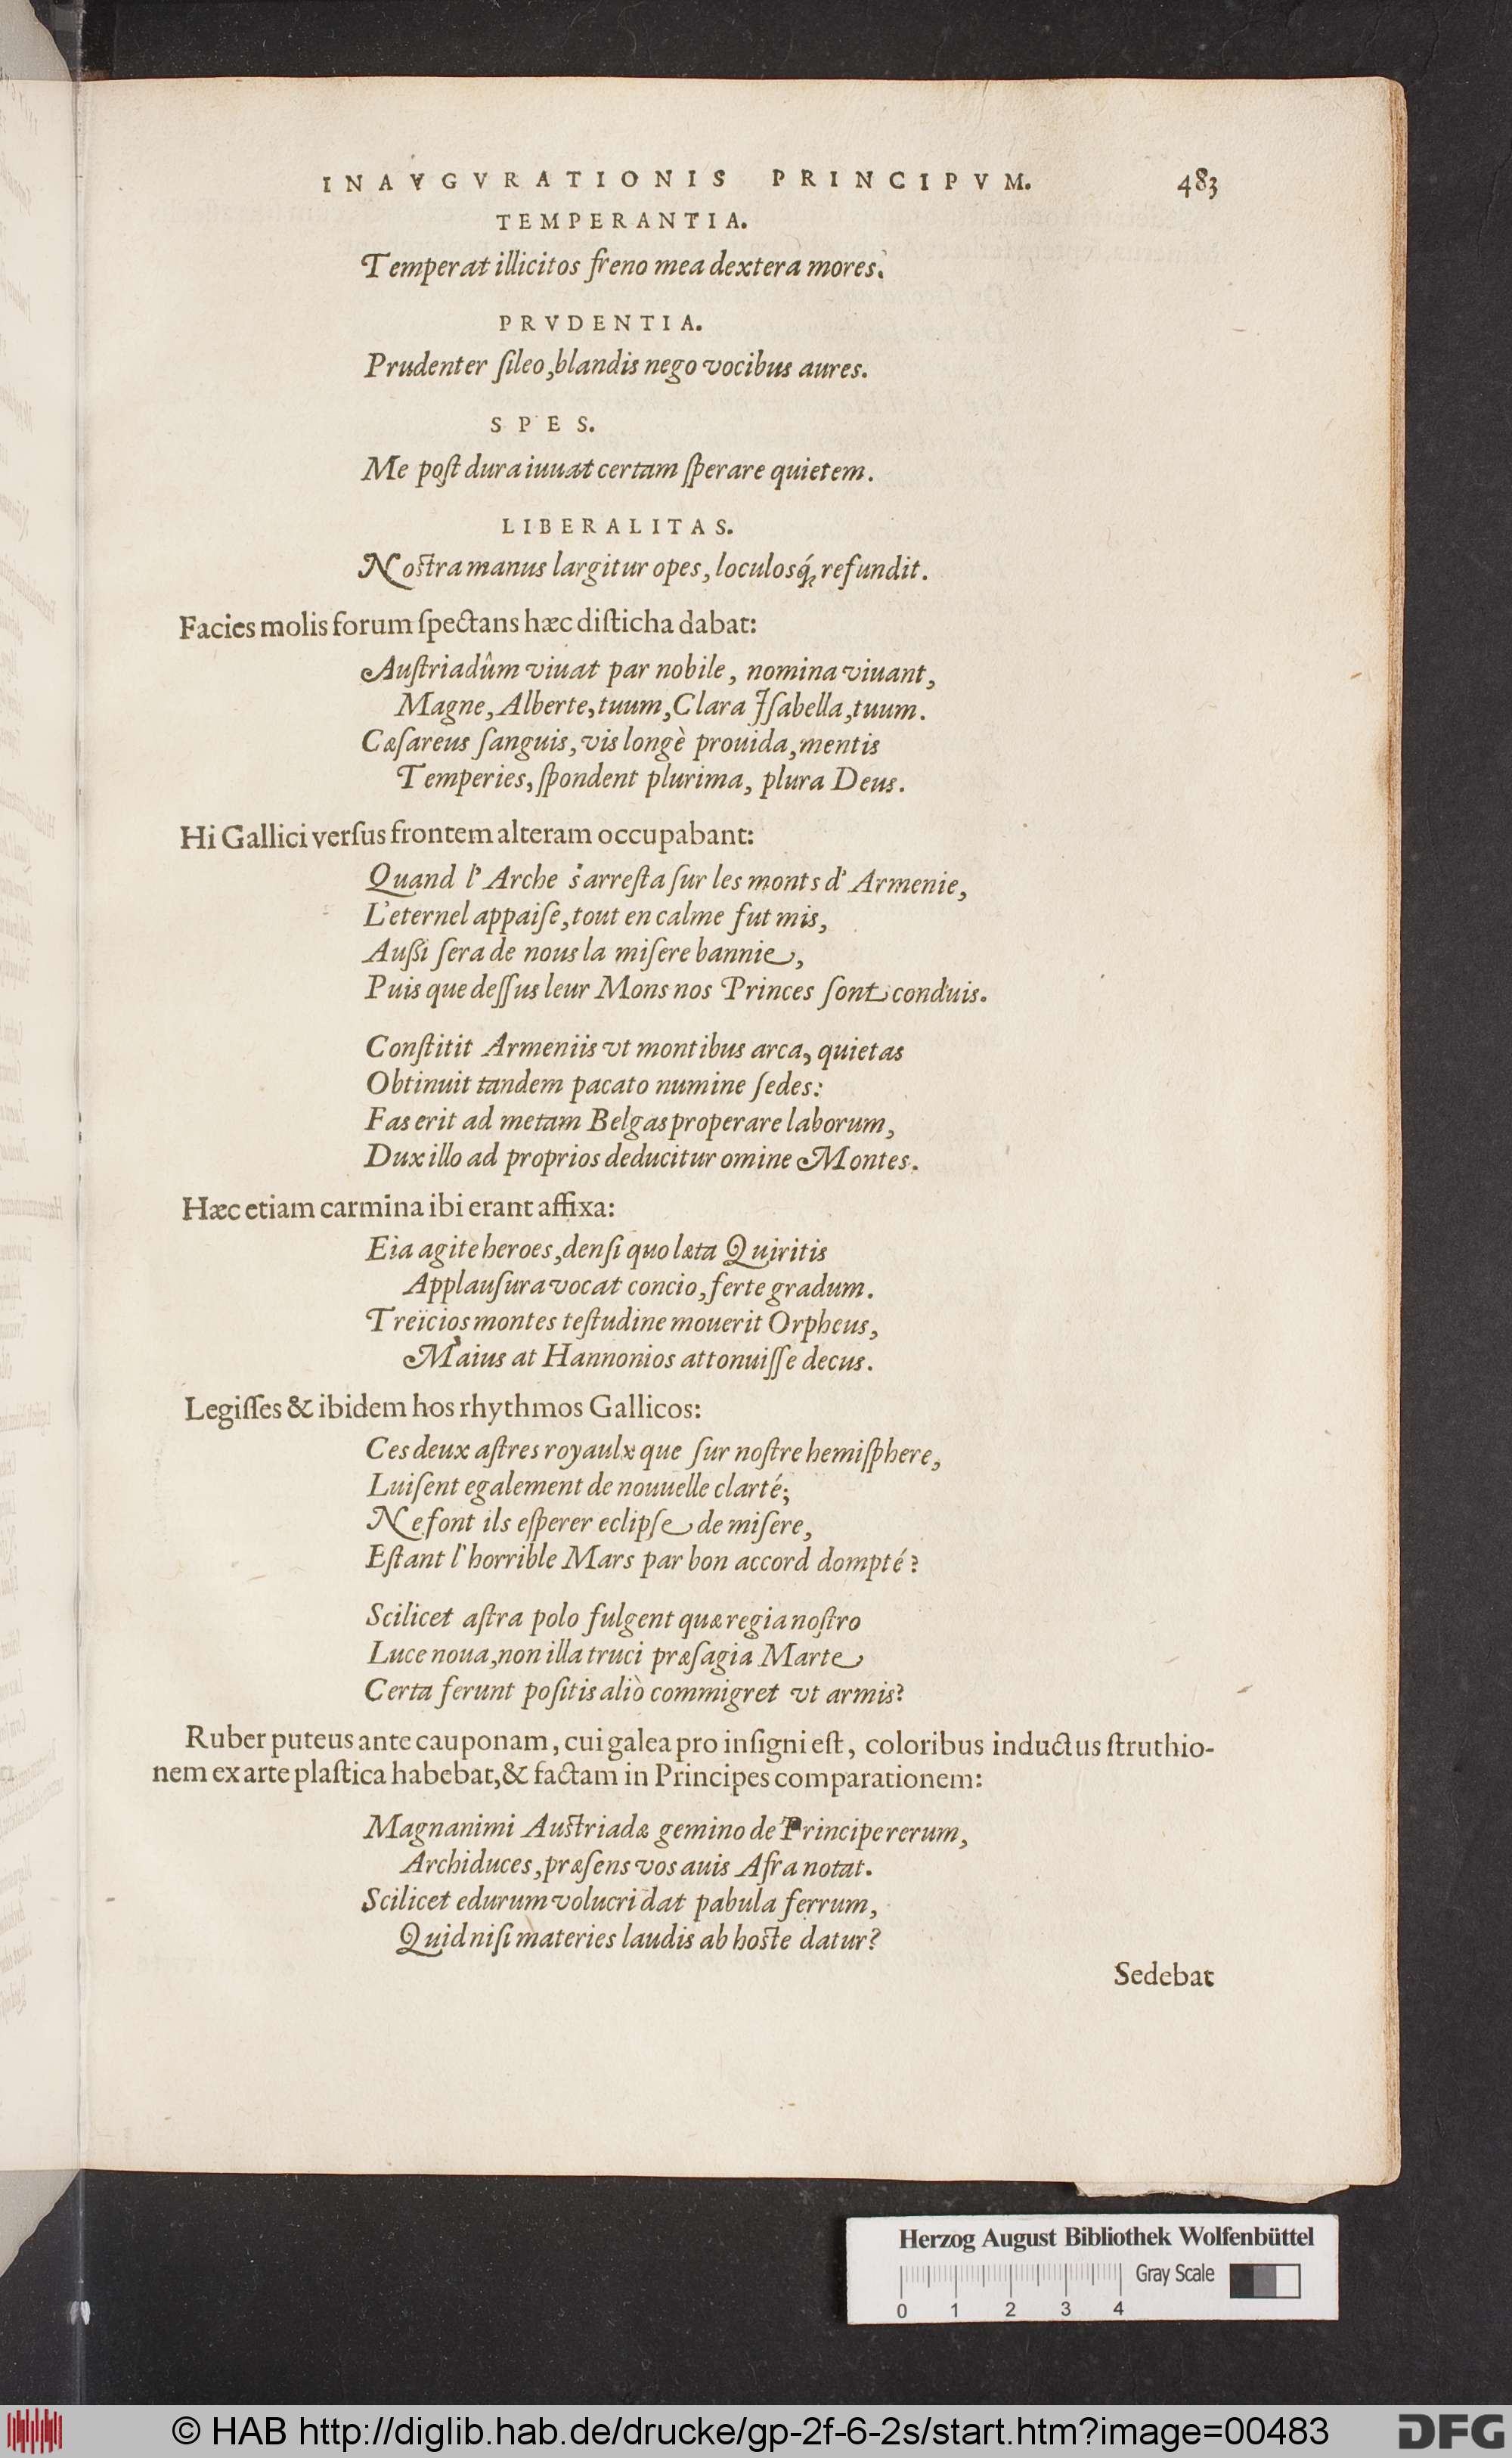 INAVGVRATIONIS PRINCIPVM. 483
TEMPERANTIA.
Temperat illicitos freno mea dextera mores.
PRVDENTIA.
Prudenter ſileo, blandis nego vocibus aures.
SPES.
Me poſt dura iuuat certam ſperare quietem.
LIBERALITAS.
Noſtra manus largitur opes, loculosq́; refundit.
Facies molis forum ſpectans hæc diſticha dabat:
Auſtriadûm viuat par nobile, nomina viuant,
Magne, Alberte, tuum, Clara Iſabella, tuum.
Cæſareus ſanguis, vis longè prouida, mentis
Temperies, ſpondent plurima, plura Deus.
Hi Gallici verſus frontem alteram occupabant:
Quand l' Arche s'arreſta ſur les monts d' Armenie,
L'eternel appaiſe, tout en calme fut mis,
Auſſi ſera de nous la miſere bannie,
Puis que deſſus leur Mons nos Princes ſont conduis.
Conſtitit Armeniis vt montibus arca, quietas
Obtinuit tandem pacato numine ſedes:
Fas erit ad metam Belgas properare laborum,
Dux illo ad proprios deducitur omine Montes.
Hæc etiam carmina ibi erant affixa:
Eia agite heroes, denſi quo læta Quiritis
Applauſura vocat concio, ferte gradum.
Treïcios montes teſtudine mouerit Orpheus,
Maius at Hannonios attonuiſſe decus.
Legiſſes & ibidem hos rhythmos Gallicos:
Ces deux aſtres royaulx que ſur noſtre hemiſphere,
Luiſent egalement de nouuelle clarté;
Ne font ils eſperer eclipſe de miſere,
Eſtant l'horrible Mars par bon accord dompté?
Scilicet aſtra polo fulgent quæ regia noſtro
Luce noua, non illa truci præſagia Marte
Certa ferunt poſitis aliò commigret vt armis?
Ruber puteus ante cauponam, cui galea pro inſigni eſt, coloribus inductus ſtruthio-
nem ex arte plaſtica habebat, & factam in Principes comparationem:
Magnanimi Auſtriadæ gemino de Principe rerum,
Archiduces, præſens vos auis Afra notat.
Scilicet edurum volucri dat pabula ferrum,
Quid niſi materies laudis ab hoſte datur?
Sedebat
Herzog August Bibliothek Wolfenbüttel
Gray Scale
0 1 2 3 4
© HAB http://diglib.hab.de/drucke/gp-2f-6-2s/start.htm?image=00483
DFG